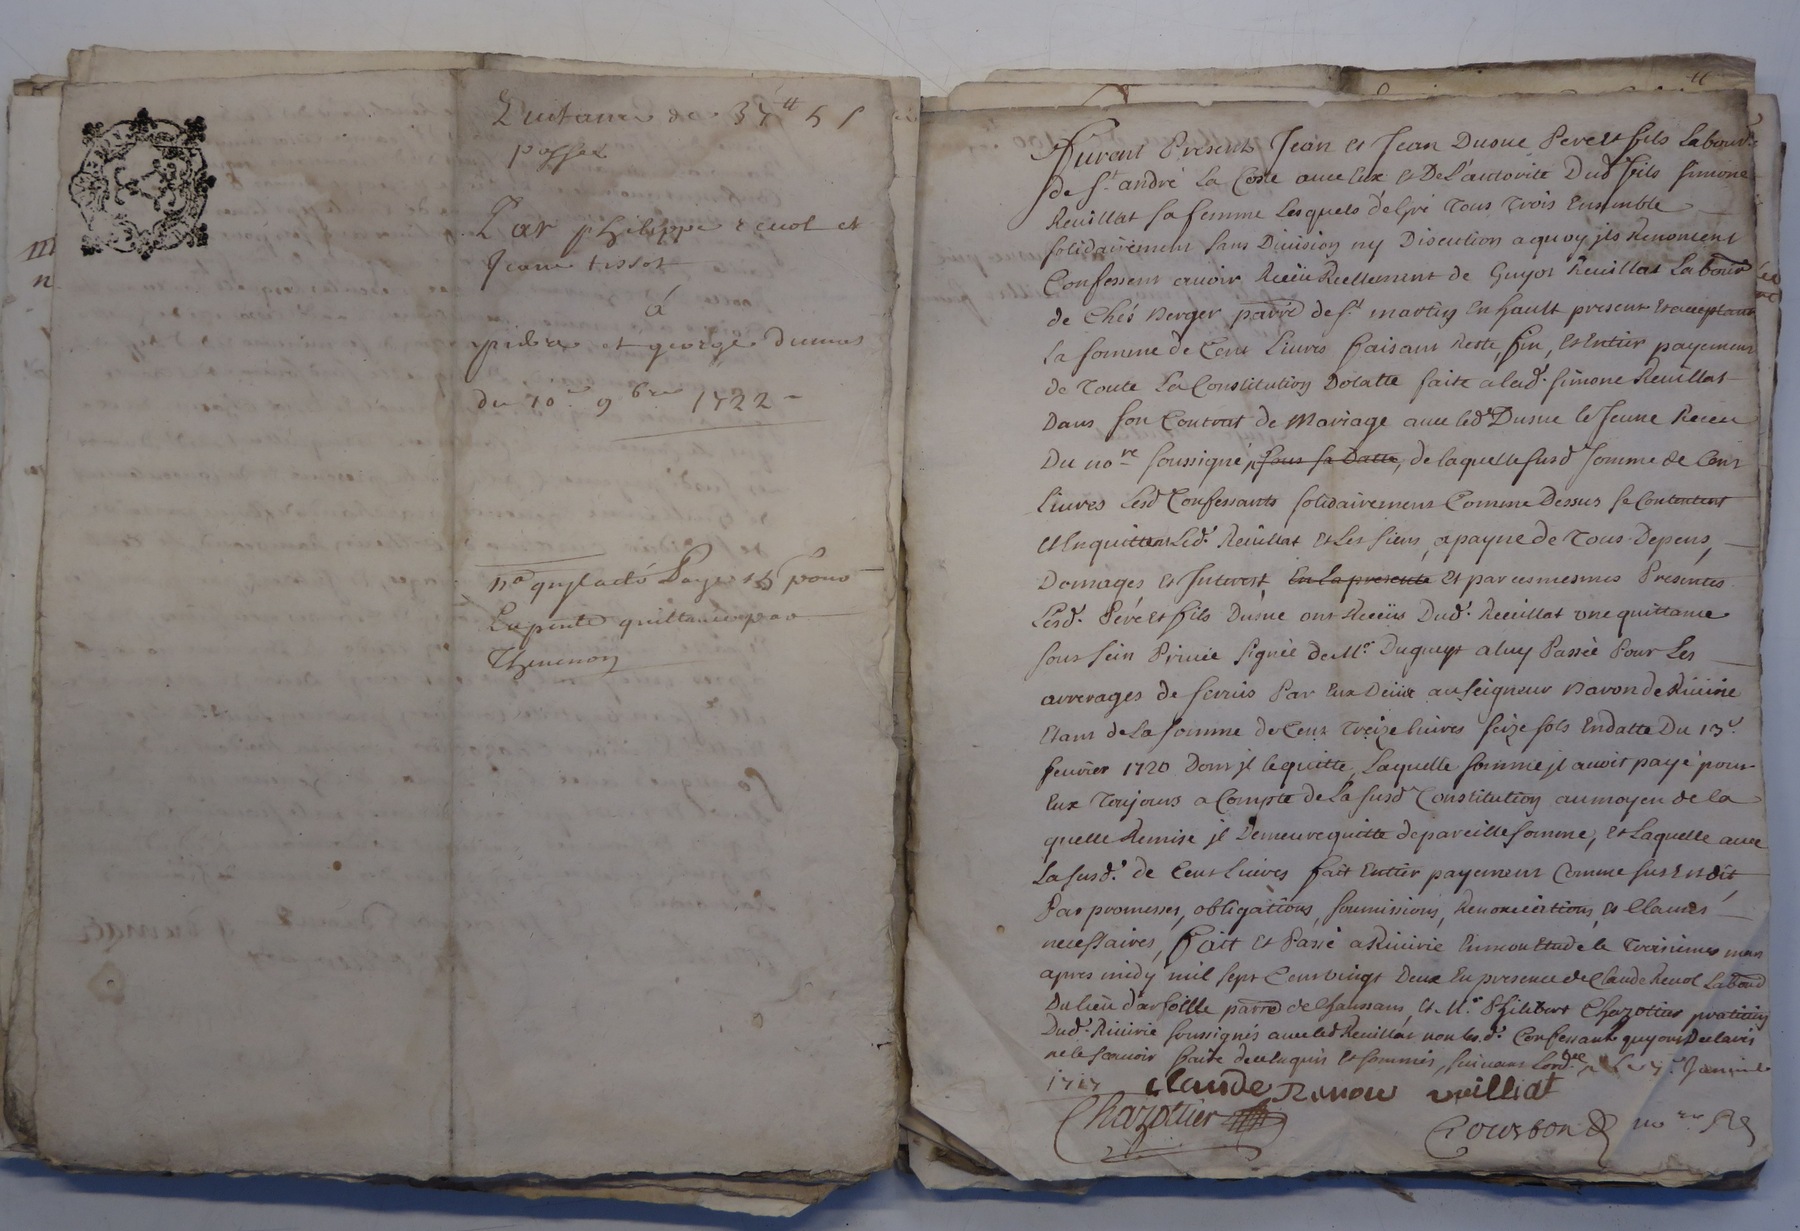 Quitance de 37ᵗᵗ 5 s
passee
Par philippe renol et
Jeane tissot
á
pierre et george dumas
du 10ᵉ 9bre 1722
Jay payé 15 s pour
quittance par
Thevenon
Furent Presents Jean et Jean Dusuc Pere et fils Labourʳˢ
de Sᵗ andré La Coste avec Eux et De L'autorité Dud fils Simone
Reuillat sa femme Lesquels de gré Tous Trois Ensemble
solidairement sans Division ny Discution a quoy ils Renoncent
Confessent avoir Receü Reellement de Guyot Reuillat Labourʳ
de Chés Berger parrᵉ de Sᵗ martin En hault present et acceptant
La somme de Cent Livres faisant Reste, fin, et Entier payement
de Toute La Constitution Dotalle faite a lad. Simone Reuillat
Dans son Contrat de Mariage avec led Dusuc le Jeune Receu
Du noʳᵉ soussigné, sous sa Datte, de laquelle susd somme de Cent
Livres Lesd Confessants solidairement Comme Dessus se Contentent
et Enquittent Led. Reuillat et Les siens, a payne de Tous Depens,
Domages et Interest, En la presente Et par ces mesmes Presentes
Lesd. Pére et fils Dusuc ont Receüs Dud. Reuillat une quittance
sous sein Privée signée de Mʳ. Dugueyt a luy Passée Pour Les
arrerages de servis Par Eux Deüe au seigneur Baron de Riverie
Etant de La somme de Cent Treize livres seize sols En datte Du 13ᵉ
fevrier 1720 Dont jl le quitte, Laquelle somme jl avoit payé pour
Eux Toujours a Compte de La susd Constitution au moyen de la
quelle Remise jl Demeure quitte de pareille somme, et Laquelle avec
La susd. de Cent Livres fait Entier payement Comme sus Est dit
Par promesses, obligations, soumissions, Renonciations, et Clauses
necessaires, fait et Passé a Riverie En mon Etude le Troisiemes mars
apres midy mil sept Cent vingt Deux En presence de Claude Renol Labourʳ
Du lieu d'arfoille parrᵉ de Chaussans, et Mᵉ Philibert Chazottier praticien
Dud. Riverie soussignés avec led Reuillat non les d. Confessants qui ont Declarés
ne le scavoir faire de ce Enquis et sommés, suivant Lordᶜᵉ
1717 Claude Renou reuilliat
Chazottier
Coursond noʳᵉ R